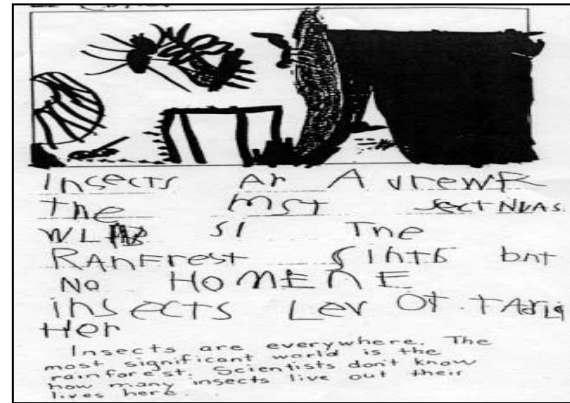 Insects Ar A vrewR
The mST sectNVAS
WL SI The
RANFrest SihTs bnt
No HOMENE
insects Lev OT. TAri
Her
Insects are everywhere. The
most significant world is the
rainforest. Scientists don't know
how many insects live out their
lives here.